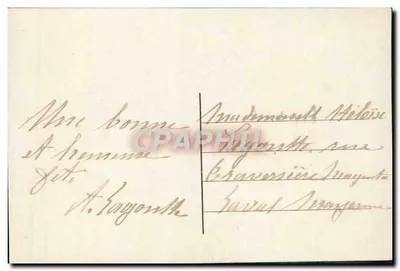 Une bonne
et heureuse
fête
A. Lagoutte
Mademoiselle Héloïse
Lagoutte rue
Traversière Magenta
Laval Mayenne
CPAPHIL